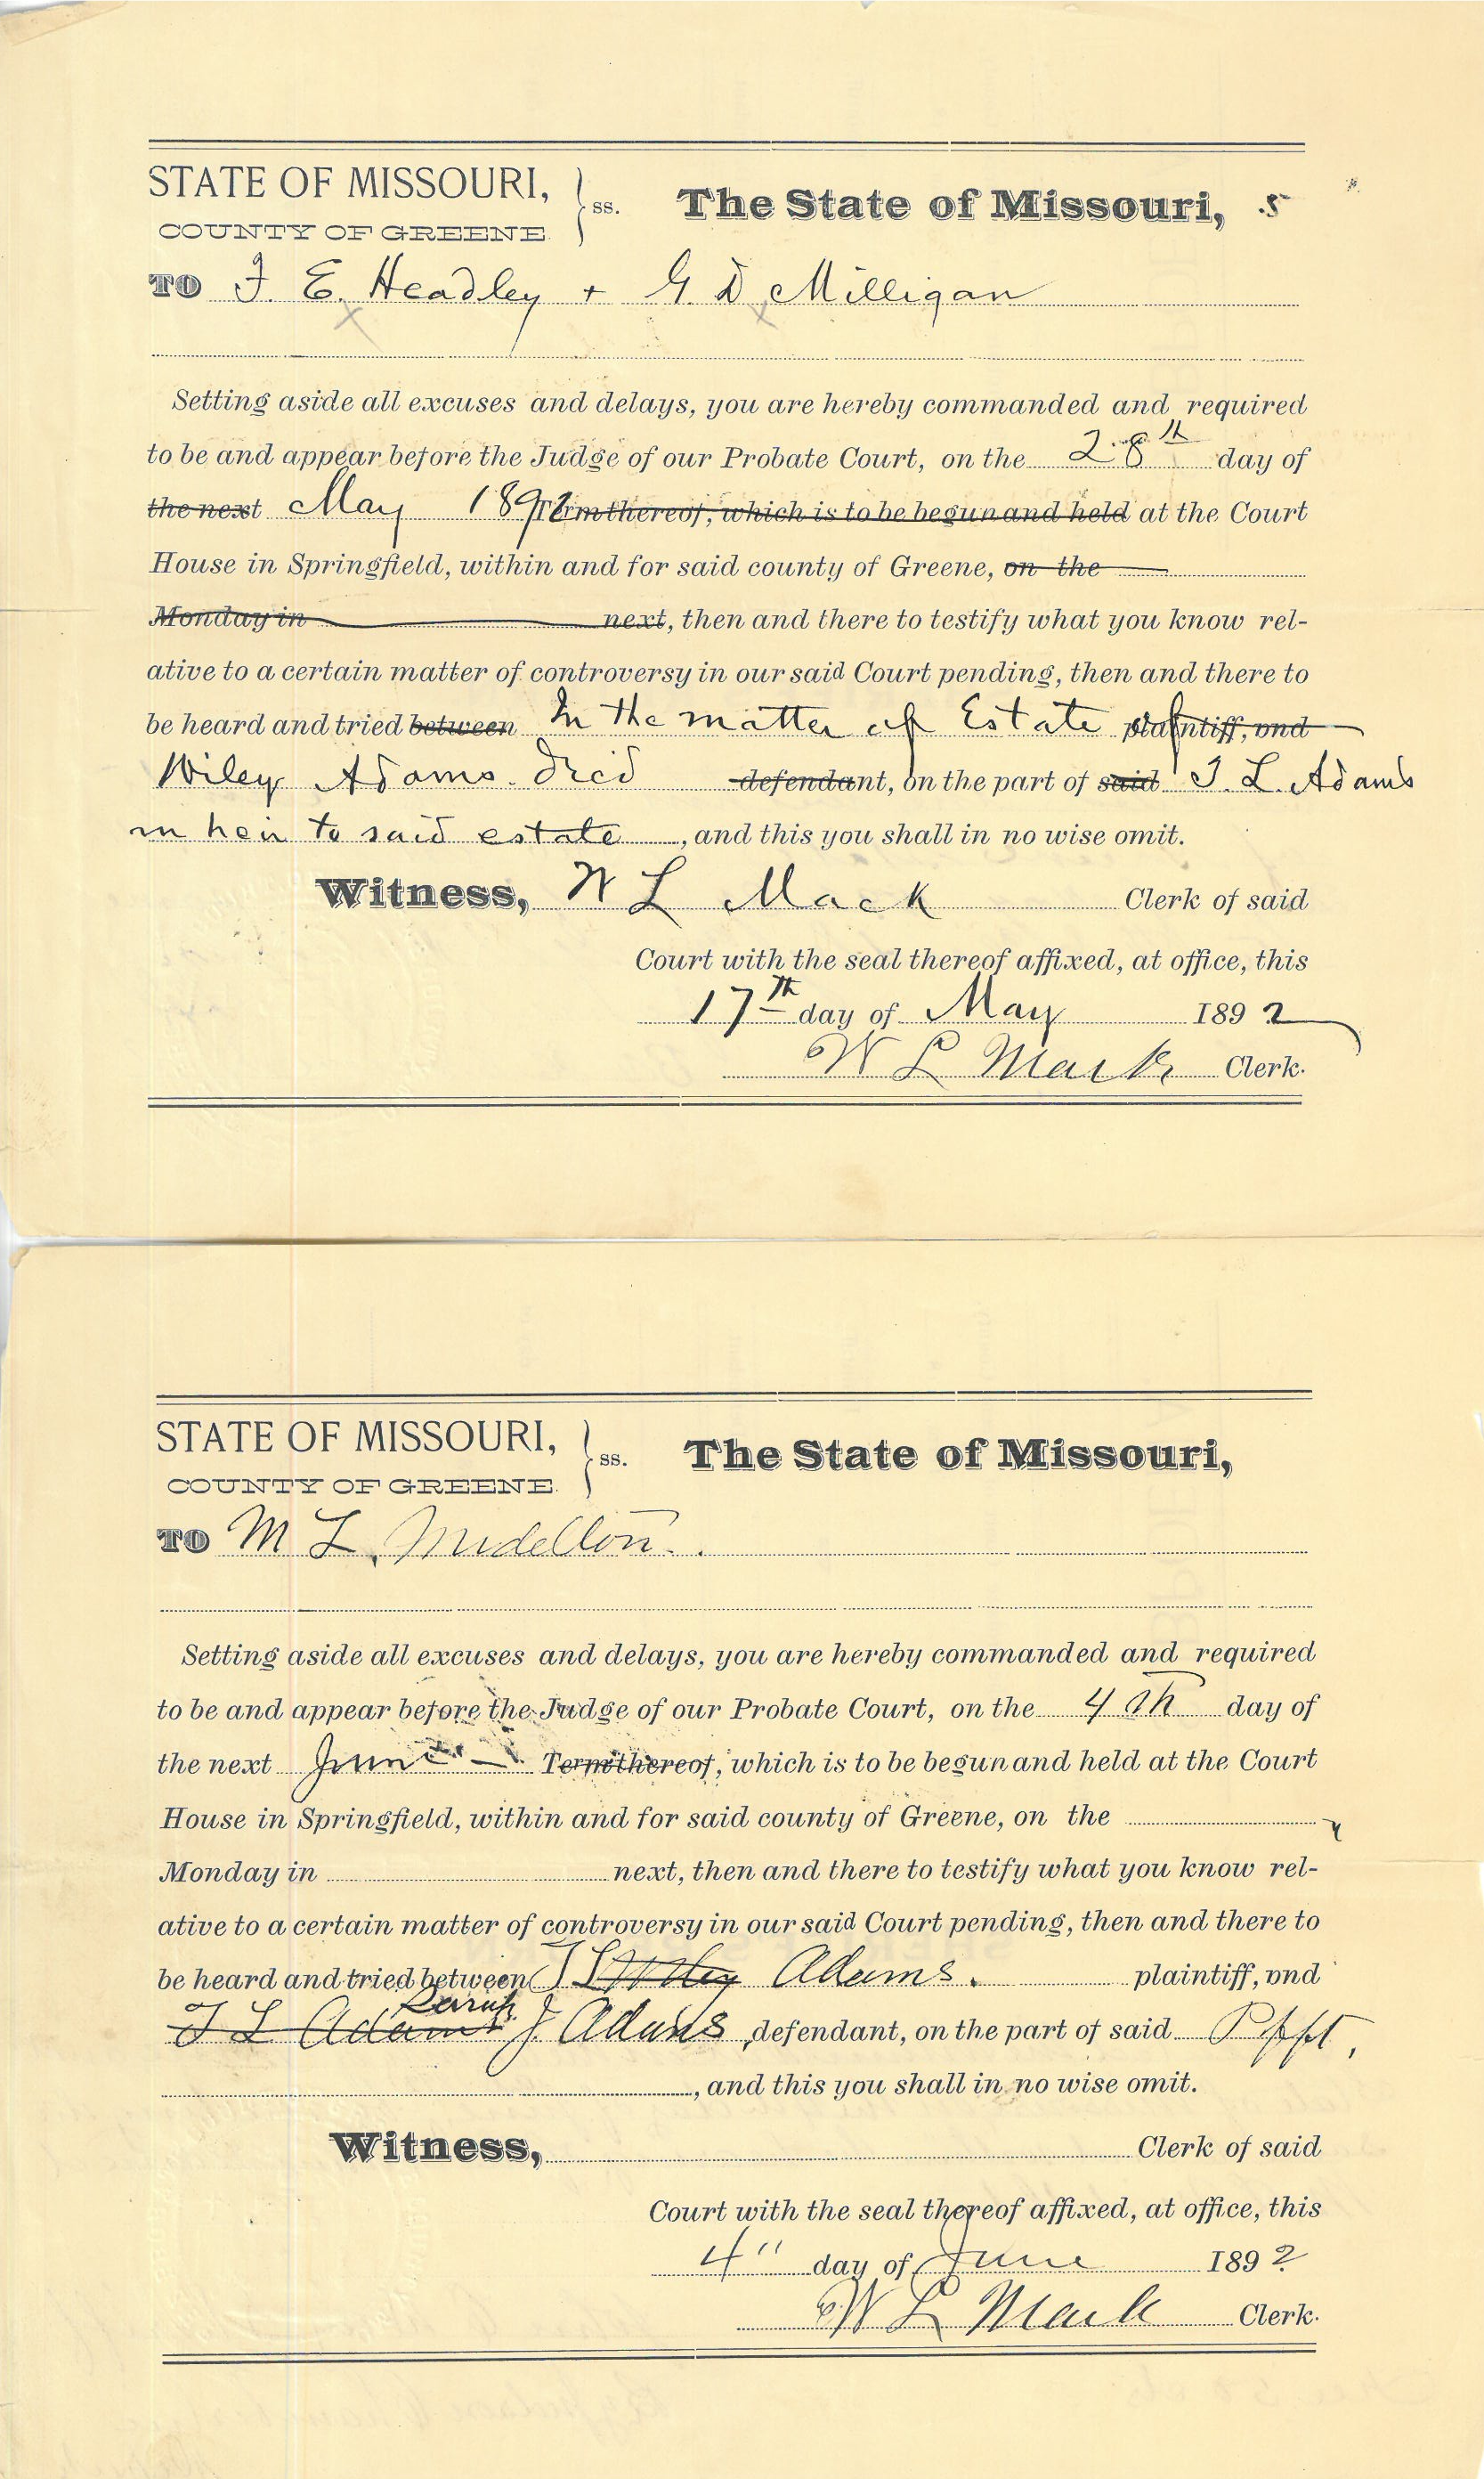 STATE OF MISSOURI, ss. The State of Missouri, .5
COUNTY OF GREENE.
TO F. E. Headley + G. D. Milligan
Setting aside all excuses and delays, you are hereby commanded and required
to be and appear before the Judge of our Probate Court, on the 28th day of
the next May 1892 Term thereof, which is to be begun and held at the Court
House in Springfield, within and for said county of Greene, on the
Monday in next, then and there to testify what you know rel-
ative to a certain matter of controversy in our said Court pending, then and there to
be heard and tried between In the matter of Estate of plaintiff, vnd
Wiley Adams. Decd defendant, on the part of said T. L. Adams
an heir to said estate, and this you shall in no wise omit.
Witness, W L Mack Clerk of said
Court with the seal thereof affixed, at office, this
17th day of May 1892
W L Mack Clerk.
STATE OF MISSOURI, ss. The State of Missouri,
COUNTY OF GREENE.
TO M L.
Setting aside all excuses and delays, you are hereby commanded and required
to be and appear before the Judge of our Probate Court, on the 4th day of
the next June Term thereof, which is to be begun and held at the Court
House in Springfield, within and for said county of Greene, on the
Monday in next, then and there to testify what you know rel-
ative to a certain matter of controversy in our said Court pending, then and there to
be heard and tried between T L Wiley Adams. plaintiff, vnd
T L Adams J. Adams, defendant, on the part of said
, and this you shall in no wise omit.
Witness, Clerk of said
Court with the seal thereof affixed, at office, this
4" day of June 1892
W L Mack Clerk.